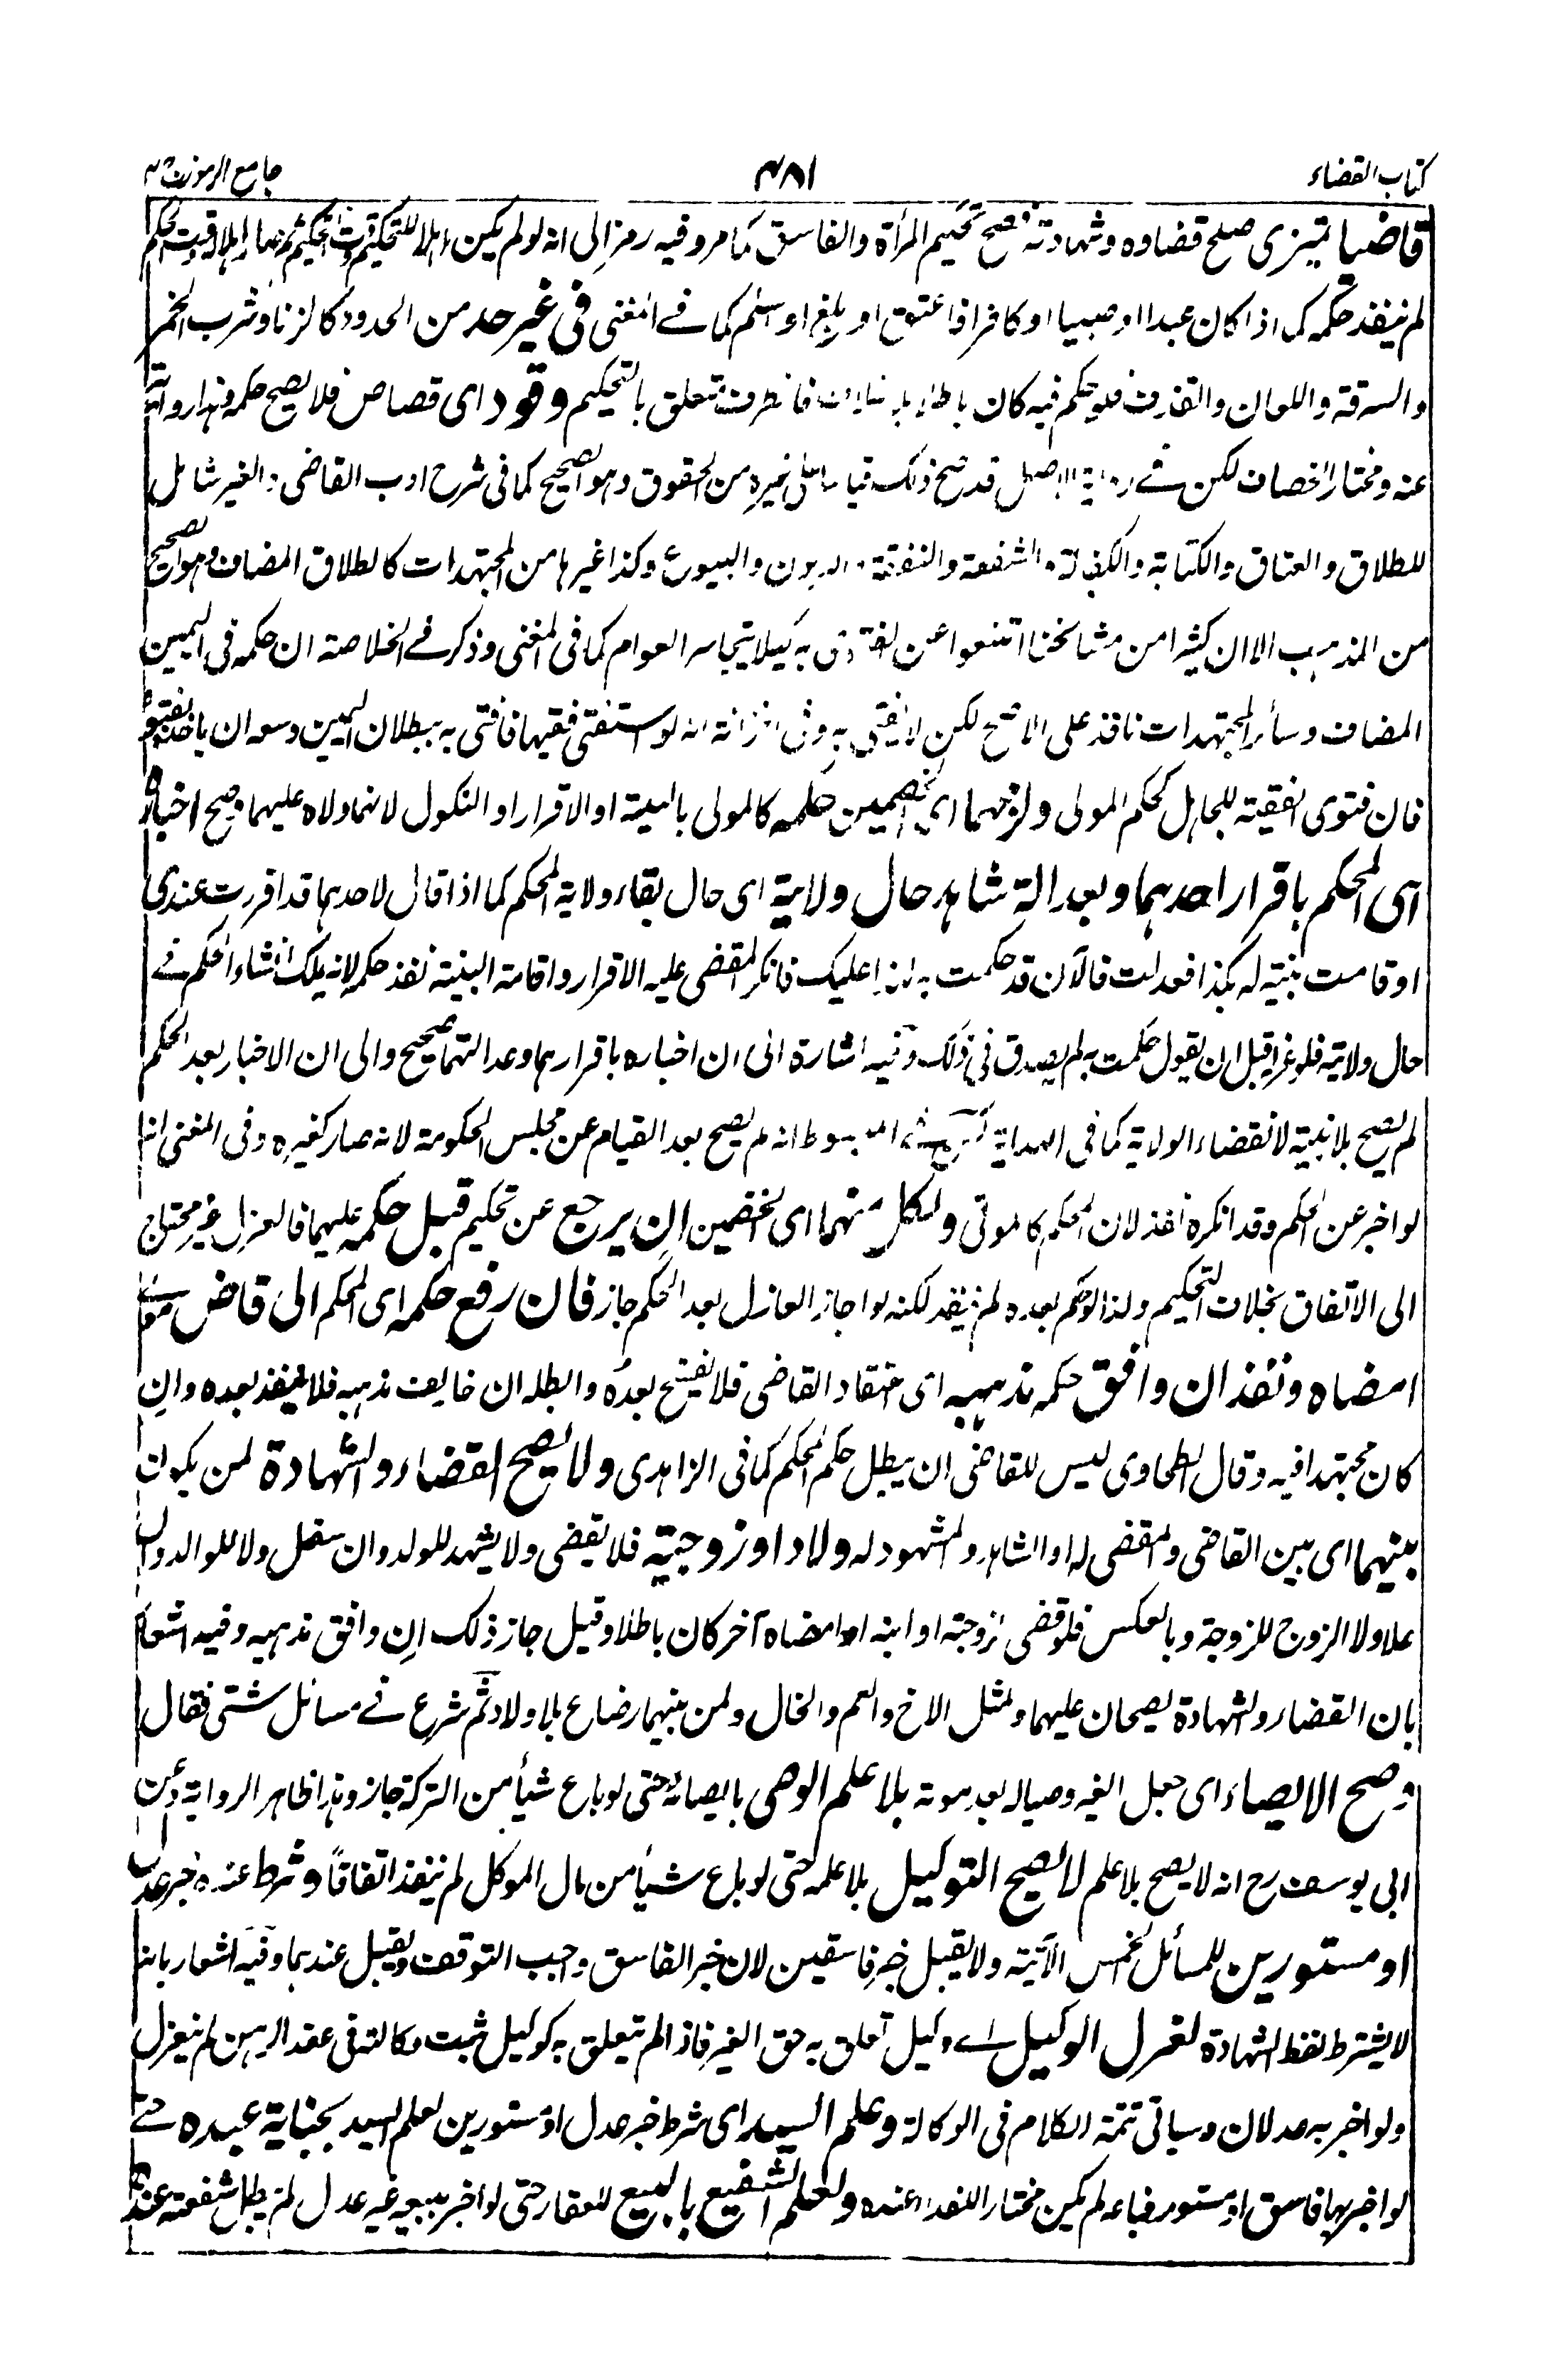 كتاب القضاء
٤٨١
جامع الرموز
قاضيا تميزى صلح قضاوه وشهادته فصح تحكيم المرأة والفاسق كما مر وفيه رمز الى انه لو لم يكن اهلا للتحكيم وقت التحكيم ثم صار اهلا وقت الحكم
لم ينفذ حكمه كما اذا كان عبدا او صبيا او كافرا فاعتق او بلغ او اسلم كما فے المغنى فى غير حد من الحدود كالزنا وشرب الخمر
والسرقة واللعان والقذف فلو حكم فيه كان باطلا فالظرف متعلق بالتحكيم وقود اى قصاص فلا يصح حكمه وهذا رواية
عنه ومختار الخصاف لكن فے رواية الاصل قد صح ذلك قياسا على غيره من الحقوق وهو الصحيح كما فى شرح ادب القاضى والغير شامل
للطلاق والعتاق والكتابة والكفالة والشفعة والنفقة والديون والبيوع وكذا غيرها من المجتهدات كالطلاق المضاف وهو الصحيح
من المذهب الا ان كثيرا من مشائخنا امتنعوا عن الفتوى به كيلا يتجاسر العوام كما فى المغنى وذكر فے الخلاصة ان حكمه فى اليمين
المضاف وسائر المجتهدات نافذ على الاصح لكن لا يفتى به وفى الخزانة انه لو استفتى فقيها فافتى به ببطلان اليمين وسعه ان ياخذ بفتواه
فان فتوى الفقيه للجاهل كحكم المولى ولزمهما اى الخصمين حكمه كالمولى بالبينة او الاقرار او النكول لانهما ولاه عليهما وصح اخباره
اى المحكم باقرار احدهما وبعدالة شاهد حال ولايته اى حال بقاء ولاية المحكم كما اذا قال لاحدهما قد اقررت عندى
او قامت بينة له بكذا فعدلت فالآن قد حكمت به لهذا عليك فانكر المقضى عليه الاقرار واقامة البينة نفذ حكمه لانه يملك انشاء الحكم فے
حال ولايته فلو عزل قبل ان يقول حكمت به لم يصدق فى ذلك وفيه اشارة الى ان اخباره باقرارهما وعدالتهما صحيح والى ان الاخبار بعد الحكم
لم يصح بلا بينة لانقضاء الولاية كما فى الهداية المبسوط انه لم يصح بعد القيام عن مجلس الحكومة لانه صار كغيره وفى المغنى انه
لو اخبر عن الحكم وقد انكره نفذ لان المحكم كالمولى ولكل منهما اى الخصمين ان يرجع عن تحكيم قبل حكمه عليهما فالعزل غير محتاج
الى الاتفاق بخلاف التحكيم ولذا لو حكم بعده لم ينفذ لكنه لو اجاز العازل بعد الحكم جاز فان رفع حكمه اى المحكم الى قاض مولى
امضاه ونفذ ان وافق حكمه مذهبه اى اعتقاد القاضى فلا يفتح بعده وابطله ان خالف مذهبه فلا ينفذ بعده وان
كان مجتهدا فيه وقال الطحاوى ليس للقاضى ان يبطل حكم المحكم كما فى الزاهدى ولا يصح القضاء والشهادة لمن يكون
بينهما اى بين القاضى والمقضى له او الشاهد والمشهود له ولاد او زوجية فلا يقضى ولا يشهد للولد وان سفل ولا للوالد وان
علا ولا الزوج للزوجة وبالعكس فلو قضى لزوجته او ابنه او امضاه آخر كان باطلا وقيل جاز ذلك ان وافق مذهبه وفيه اشعار
بان القضاء والشهادة يصحان عليهما ولمثل الاخ والعم والخال ولمن بينهما رضاع بلا ولاد ثم شرع فے مسائل شتى فقال
وصح الايصاء اى جعل الغير وصيا له بعد موته بلا علم الوصى بايصائه حتى لو باع شيأ من التركة جاز وهذا ظاهر الرواية وعن
ابى يوسف رح انه لا يصح بلا علم لا يصح التوكيل بلا علمه حتى لو باع شيأ من مال الموكل لم ينفذ اتفاقاً وشرط عنده خبر عدل
او مستورين للمسائل الخمس الآتية ولا يقبل خبر فاسقين لان خبر الفاسق واجب التوقف ويقبل عندهما وفيه اشعار بانه
لا يشترط لفظ الشهادة لعزل الوكيل اے وكيل تعلق به حق الغير فاذا لم يتعلق به كوكيل ثبت وكالته فى عقد الرهن لم ينعزل
ولو اخبر به عدلان وسياتى تتمة الكلام فى الوكالة وعلم السيد اى شرط خبر عدل او مستورين لعلم السيد بجناية عبده حتى
لو اخبر بها فاسق او مستور فباعه لم يكن مختارا للفداء عنده ولعلم الشفيع بالبيع للعقار حتى لو اخبر ببيع غير عدل لم يبطل شفعته عنده